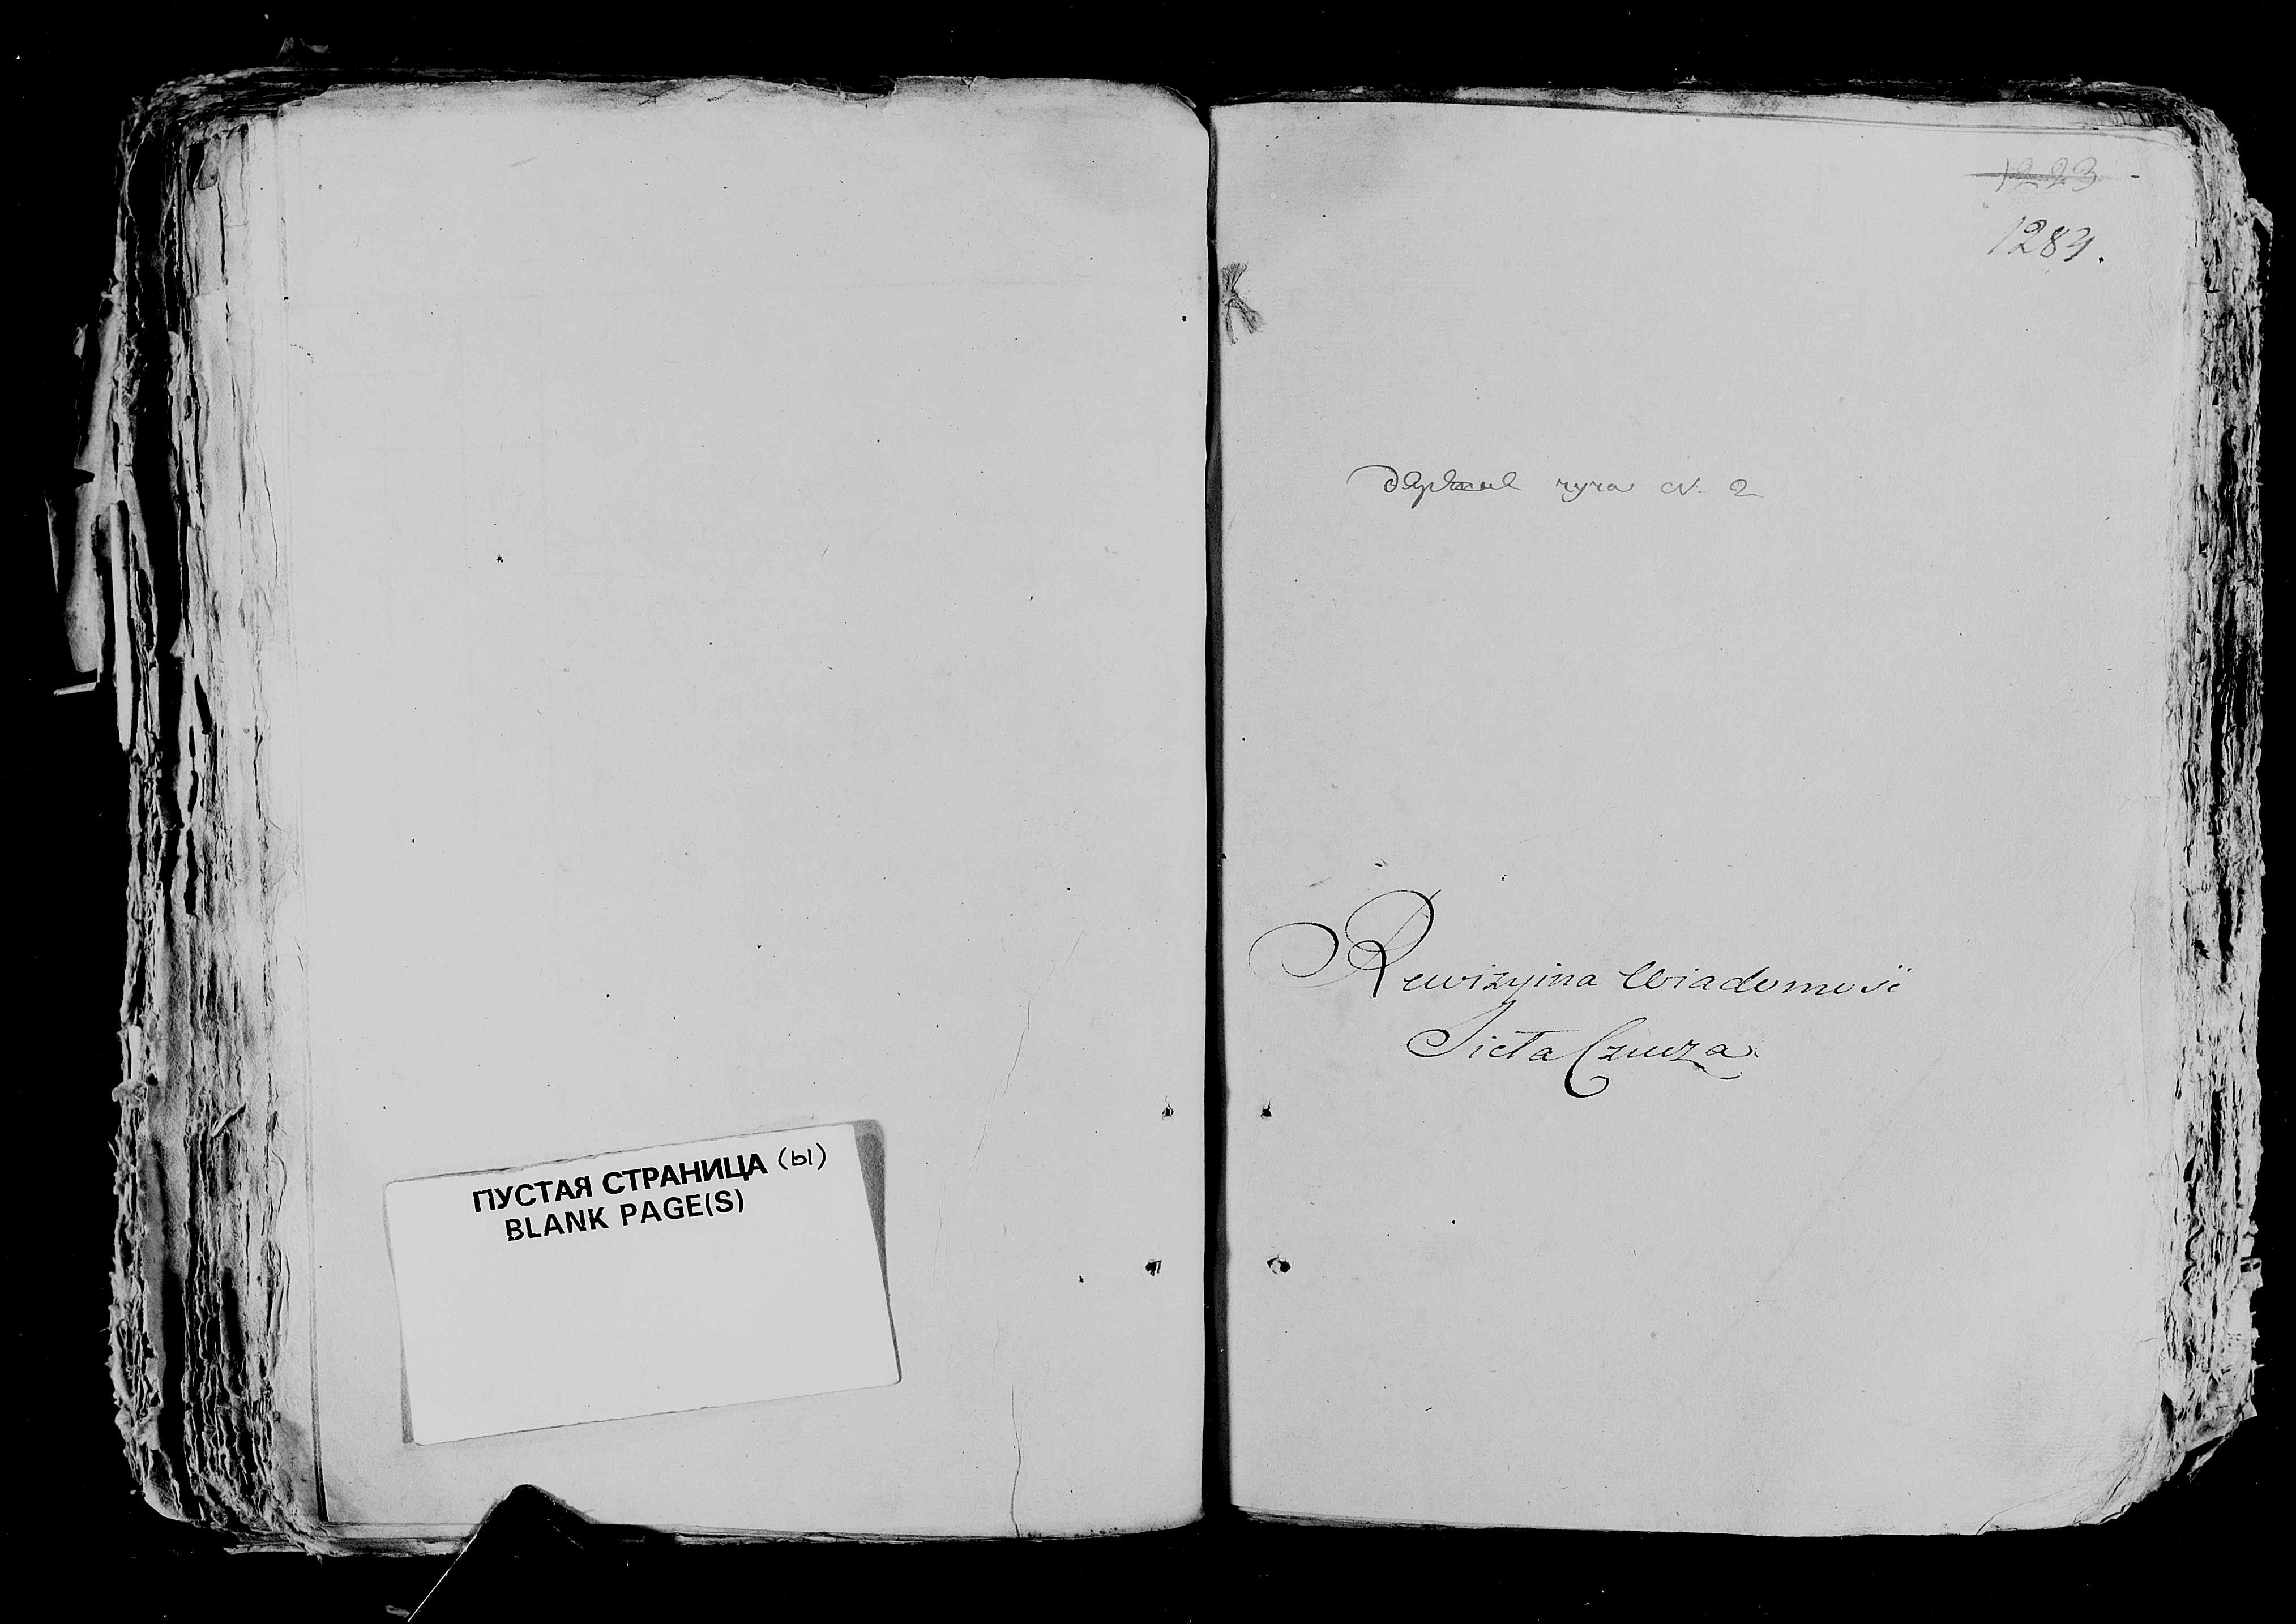 ПУСТАЯ СТРАНИЦА (ы)
BLANK PAGE(S)
1223
1284.
чуза N. 2
Rewizyina Wiadomość
Sieła Czuza